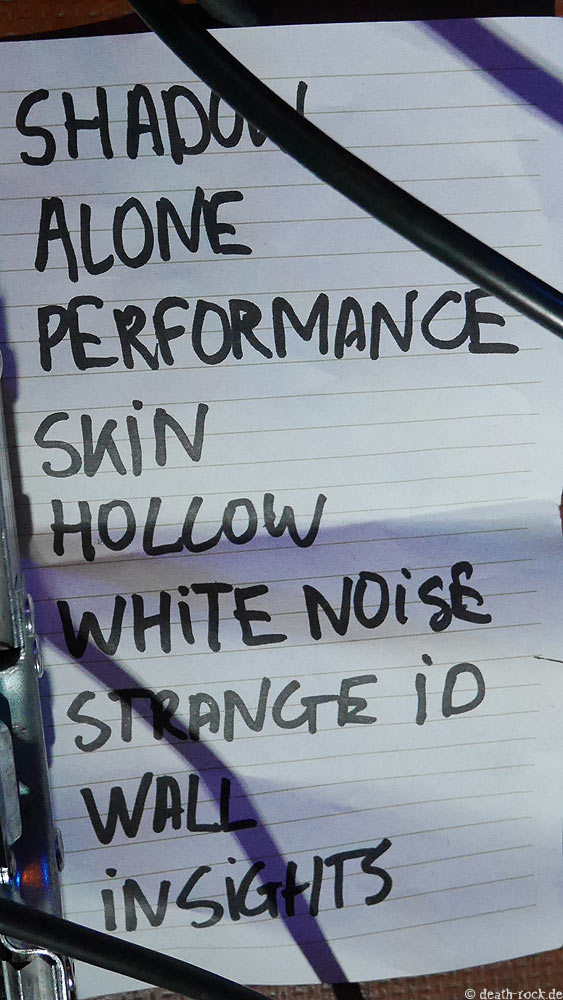 SHADOW
ALONE
PERFORMANCE
SKiN
HOLLOW
WHiTE NOiSE
STRANGE iD
WALL
iNSiGHTS
© death-rock.de